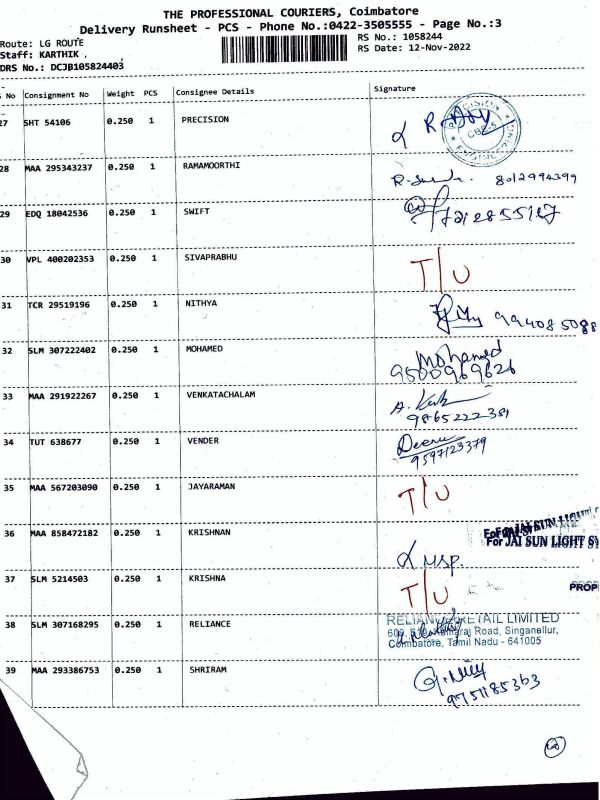 THE PROFESSIONAL COURIERS, Coimbatore
Delivery Runsheet - PCS - Phone No.:0422-3505555 - Page No.:3
Route: LG ROUTE
RS No.: 1058244
Staff: KARTHIK
RS Date: 12-Nov-2022
DRS No.: DCJB105824403
No Consignment No Weight PCS Consignee Details Signature
27 SHT 54106 0.250 1 PRECISION
PRECISION CBE-5
28 MAA 295343237 0.250 1 RAMAMOORTHI
8012994399
29 EDQ 18042536 0.250 1 SWIFT
30 VPL 400202353 0.250 1 SIVAPRABHU T/U
31 TCR 29519196 0.250 1 NITHYA
994085088
32 SLM 307222402 0.250 1 MOHAMED Mohamed
9500969626
33 MAA 291922267 0.250 1 VENKATACHALAM
9865222381
34 TUT 638677 0.250 1 VENDER
9597123379
35 MAA 567203090 0.250 1 JAYARAMAN T/U
36 MAA 858472182 0.250 1 KRISHNAN
For JAI SUN LIGHT SY
37 SLM 5214503 0.250 1 KRISHNA T/U
PROP
38 SLM 307168295 0.250 1 RELIANCE RELIANCE RETAIL LIMITED
Road, Singanellur,
Coimbatore, Tamil Nadu - 641005
39 MAA 293386753 0.250 1 SHRIRAM
9751185363